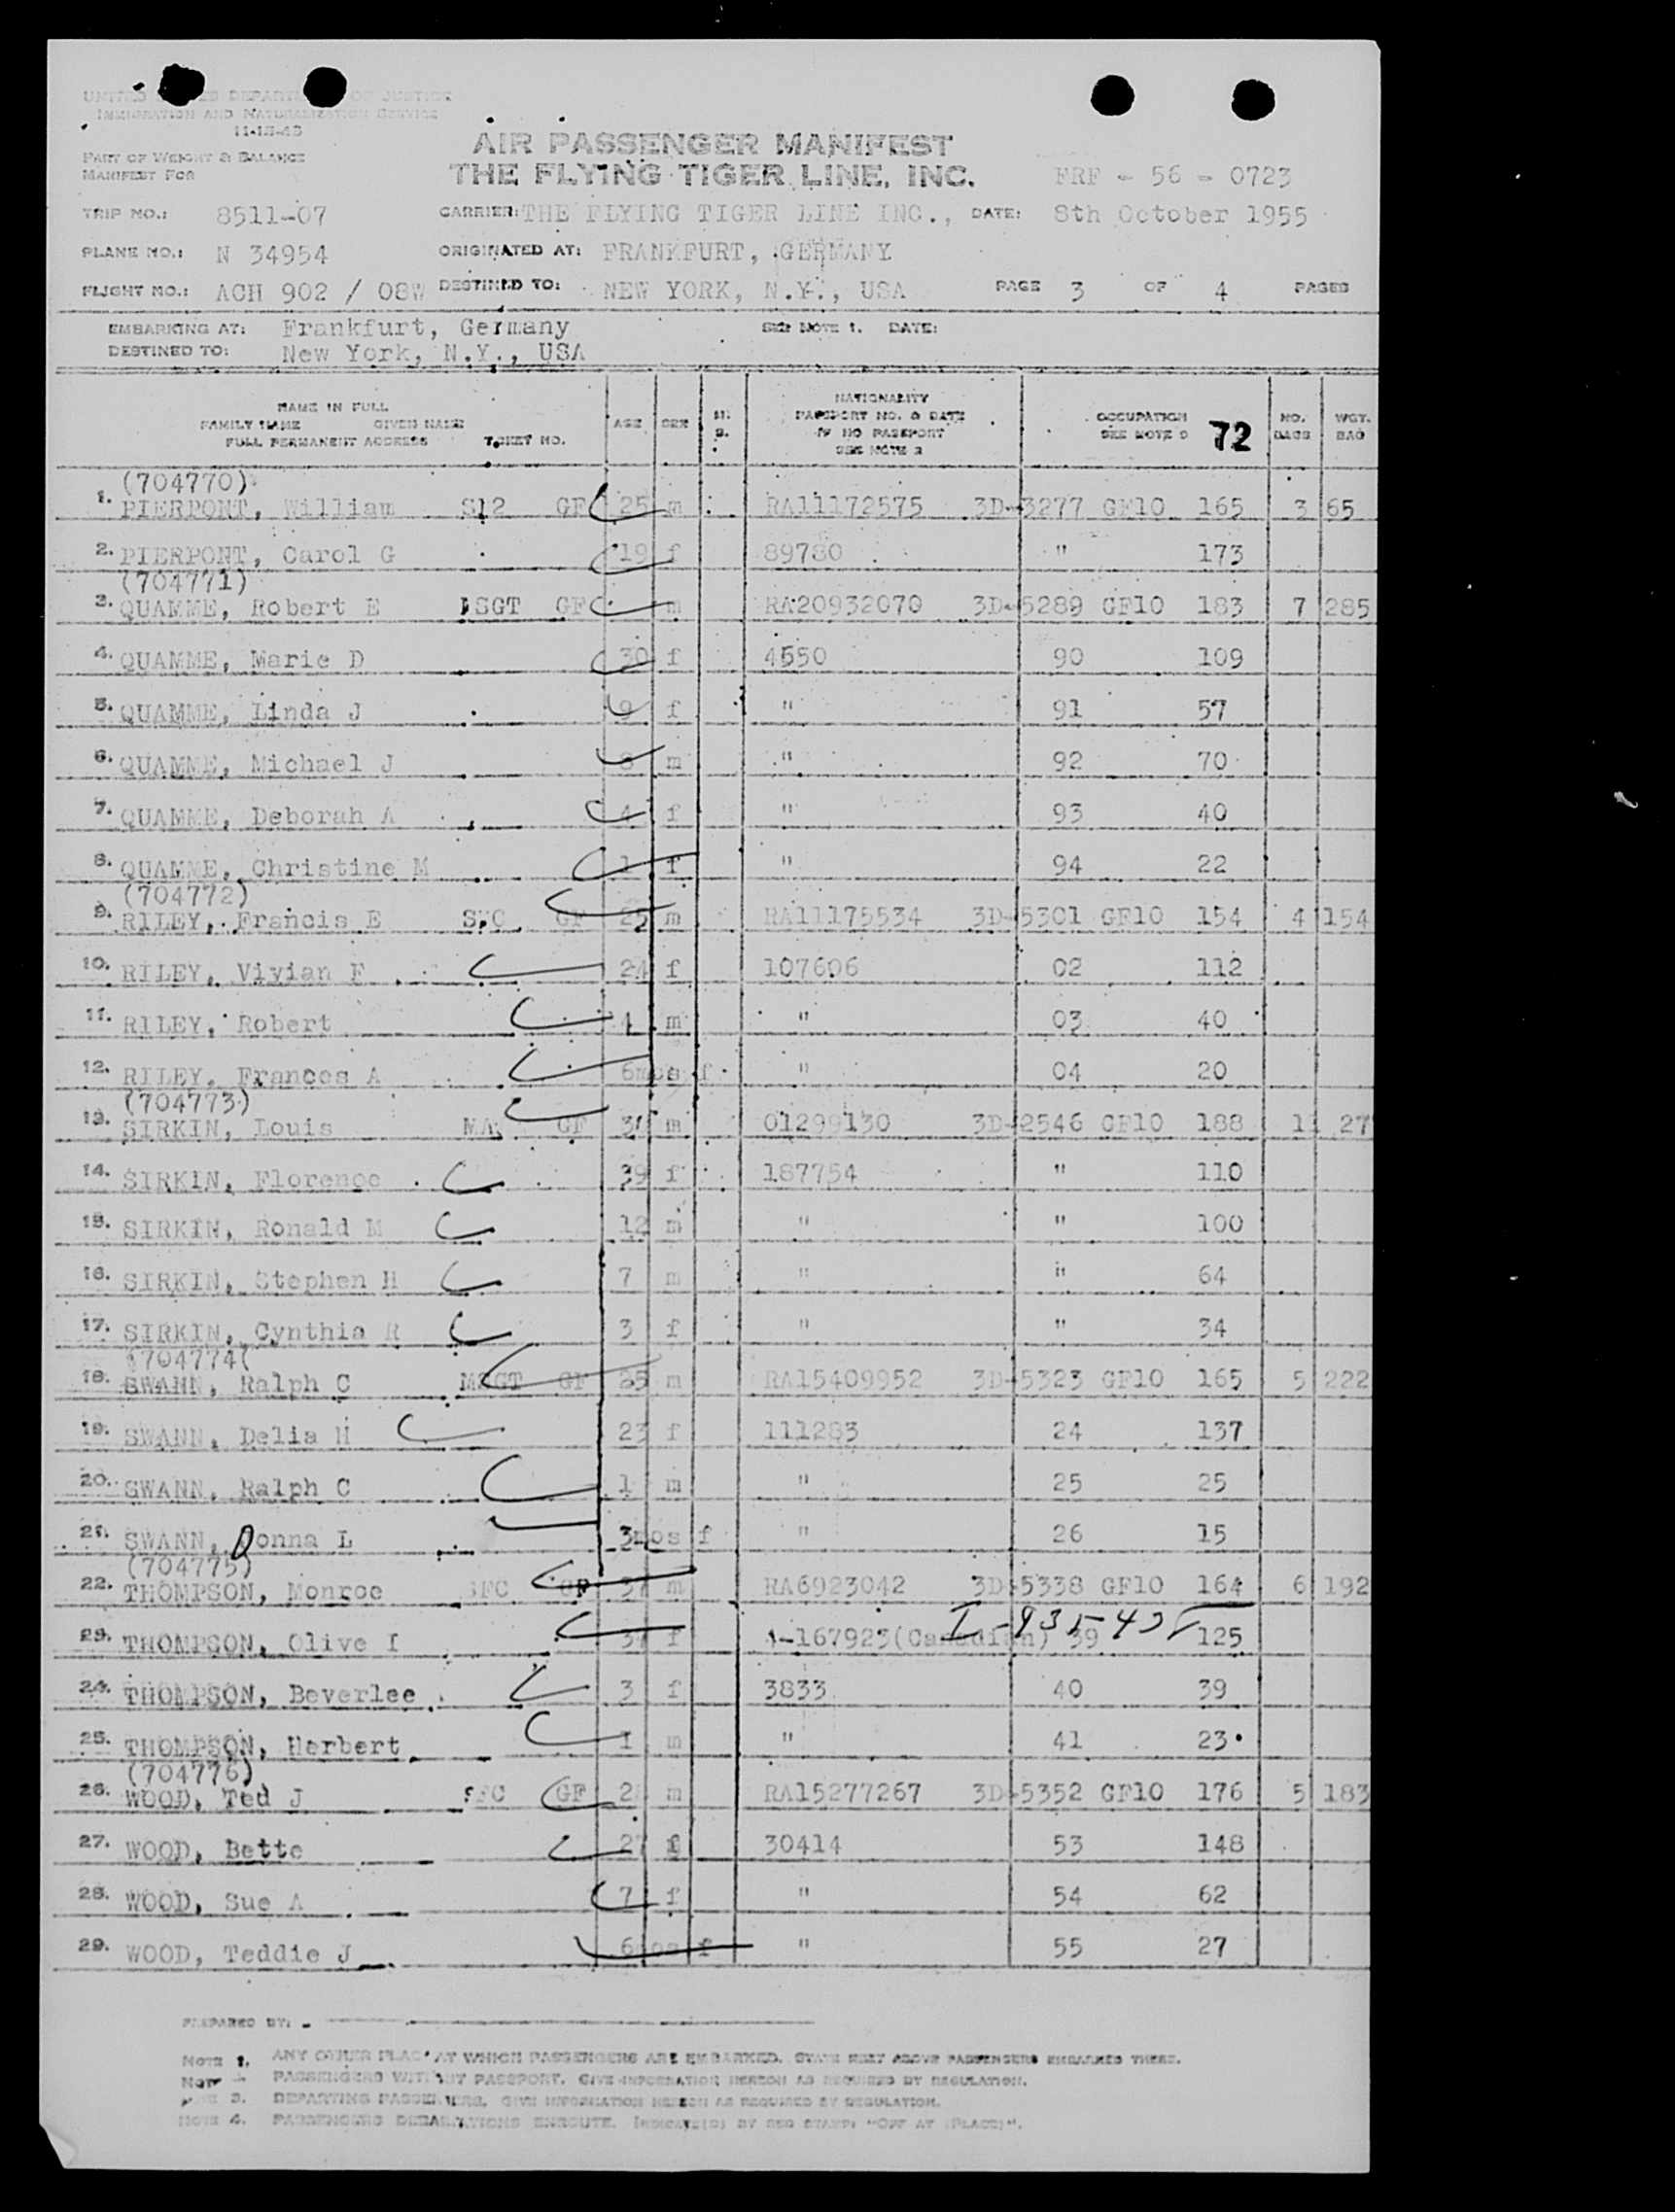 UNITED STATES DEPARTMENT OF JUSTICE
IMMIGRATION AND NATURALIZATION SERVICE
11-15-43
PART OF WEIGHT & BALANCE
MANIFEST FOR
AIR PASSENGER MANIFEST
THE FLYING TIGER LINE, INC.
FRF - 56 - 0723
TRIP NO.: 8511-07 CARRIER: THE FLYING TIGER LINE INC., DATE: 8th October 1955
PLANE NO.: N 34954 ORIGINATED AT: FRANKFURT, GERMANY
FLIGHT NO.: ACH 902 / 08W DESTINED TO: NEW YORK, N.Y., USA PAGE 3 OF 4 PAGES
EMBARKING AT: Frankfurt, Germany SEE NOTE 1. DATE:
DESTINED TO: New York, N.Y., USA
NAME IN FULL
FAMILY NAME GIVEN NAME
FULL PERMANENT ADDRESS TICKET NO.
AGE SEX
NATIONALITY
PASSPORT NO. & DATE
IF NO PASSPORT
SEE NOTE 2
OCCUPATION
SEE NOTE 3 72
NO. BAGS
WGT. BAG
(704770)
1. PIERPONT, William SP2 GF 25 m RA11172575 3D-3277 GF10 165 3 65
2. PIERPONT, Carol G 19 f 89780 " 173
(704771)
3. QUAMME, Robert E MSGT GF m RA20932070 3D-5289 GF10 183 7 285
4. QUAMME, Marie D 30 f 4550 90 109
5. QUAMME, Linda J 9 f " 91 57
6. QUAMME, Michael J 8 m " 92 70
7. QUAMME, Deborah A 4 f " 93 40
8. QUAMME, Christine M 1 f " 94 22
(704772)
9. RILEY, Francis E SFC GF 25 m RA11175534 3D-5301 GF10 154 4 154
10. RILEY, Vivian F 24 f 107606 02 112
11. RILEY, Robert m " 03 40
12. RILEY, Frances A 6mos f " 04 20
(704773)
13. SIRKIN, Louis MAJ GF m 01299130 3D-2546 GF10 188 27
14. SIRKIN, Florence 39 f 187754 " 110
15. SIRKIN, Ronald M 12 m " " 100
16. SIRKIN, Stephen H 7 m " " 64
17. SIRKIN, Cynthia R 3 f " " 34
(704774(
18. SWANN, Ralph C MSGT GF 25 m RA15409952 3D-5323 GF10 165 5 222
19. SWANN, Delia H 23 f 111283 24 137
20. SWANN, Ralph C 1 m " 25 25
21. SWANN, Donna L 3mos f " 26 15
(704775)
22. THOMPSON, Monroe SFC GF 37 m RA6923042 3D-5338 GF10 164 6 192
23. THOMPSON, Olive I f -167923(Canadian) 39 125
24. THOMPSON, Beverlee 3 f 3833 40 39
25. THOMPSON, Herbert 1 m " 41 23
(704776)
26. WOOD, Ted J SFC GF m RA15277267 3D-5352 GF10 176 5 183
27. WOOD, Bette 27 f 30414 53 148
28. WOOD, Sue A 7 f " 54 62
29. WOOD, Teddie J 6mos f " 55 27
PREPARED BY:
NOTE 1. ANY OTHER PLACE AT WHICH PASSENGERS ARE EMBARKED. STATE NEXT ABOVE PASSENGERS EMBARKED THERE.
NOTE PASSENGERS WITHOUT PASSPORT. GIVE INFORMATION HEREON AS REQUIRED BY REGULATION.
NOTE 3. DEPARTING PASSENGERS. GIVE INFORMATION HEREON AS REQUIRED BY REGULATION.
NOTE 4. PASSENGERS ENROUTE. INDICATE(D) BY RED STAMP: "OFF AT (PLACE)".